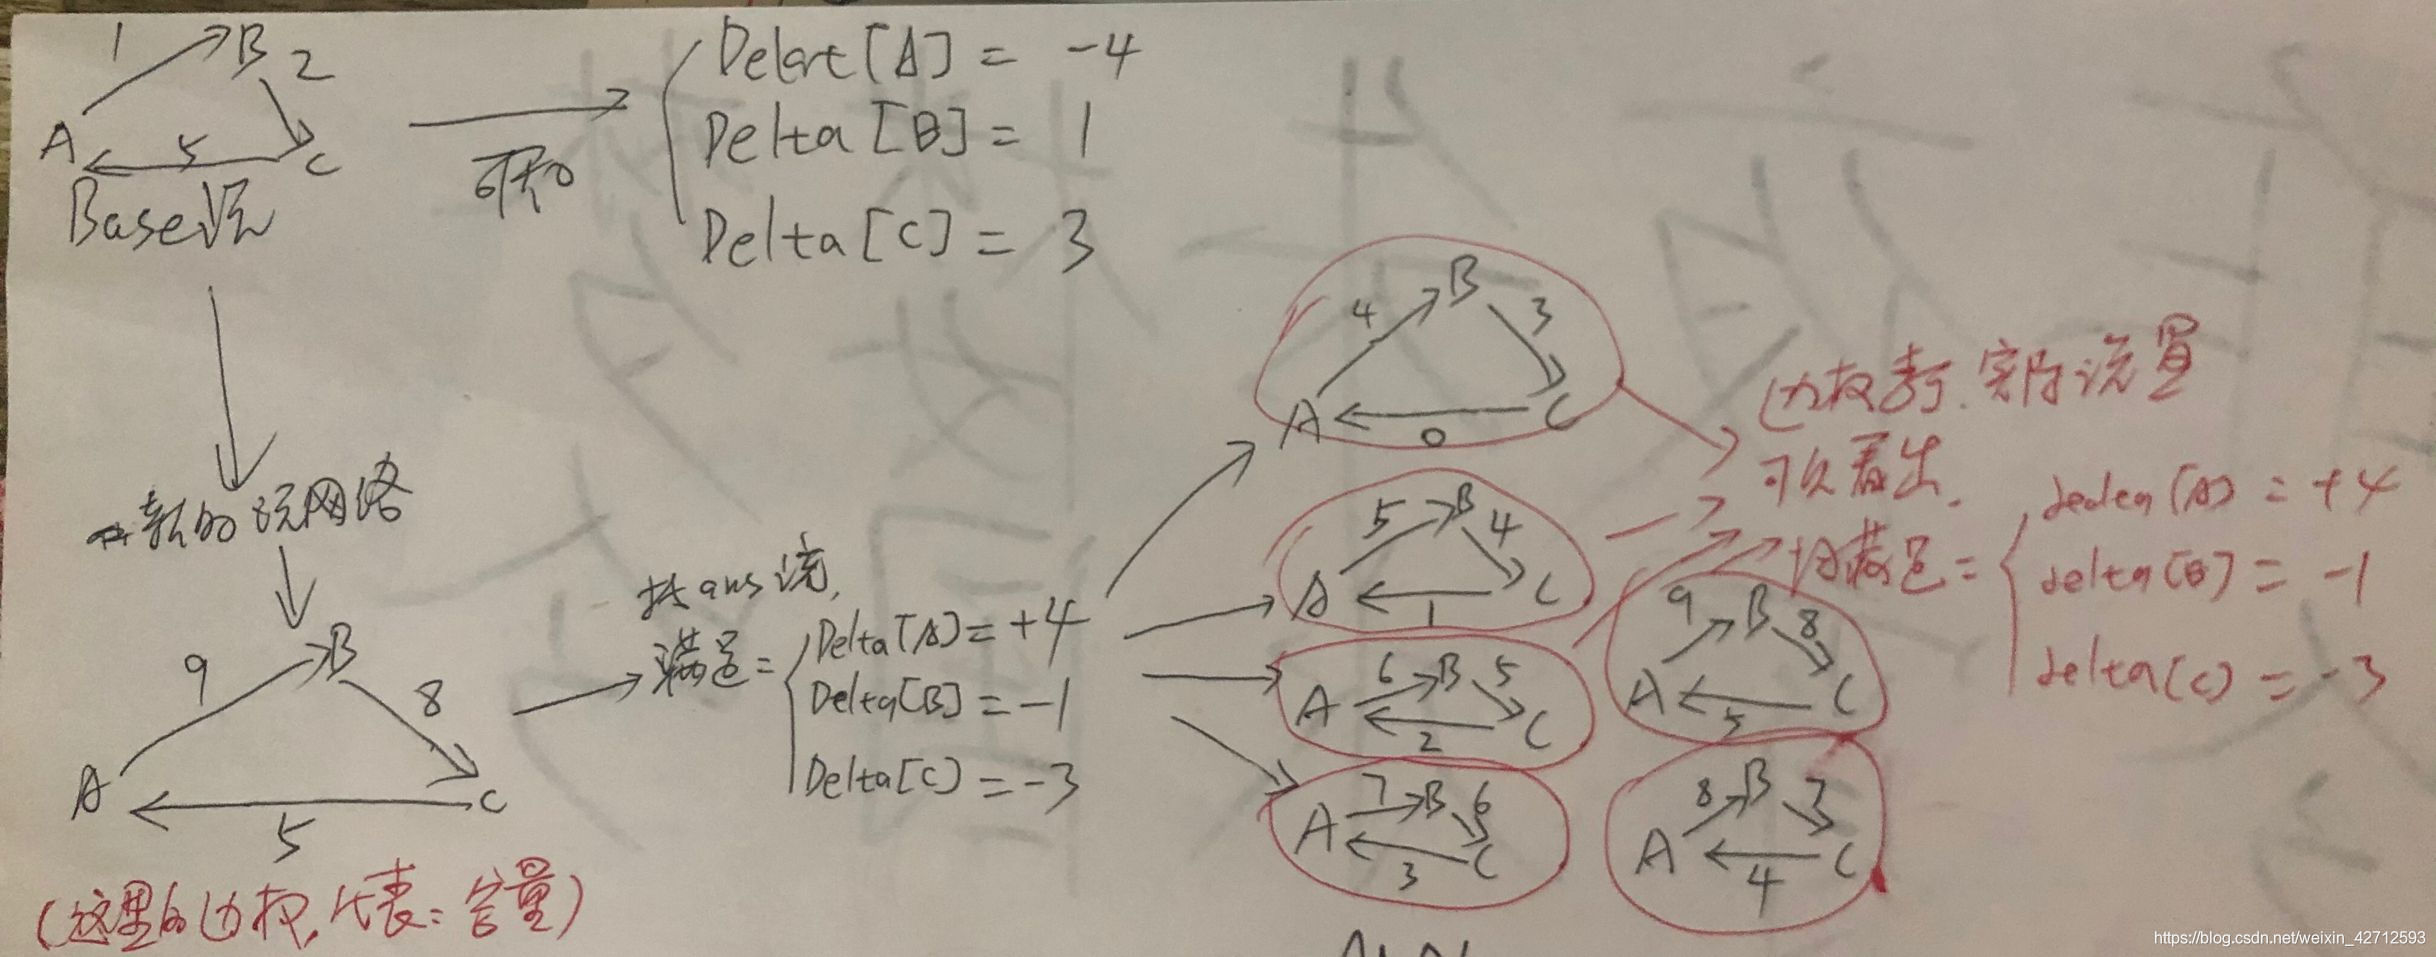 1
B
2
A
5
C
Base流
可知
Delart[A] = -4
Delta[B] = 1
Delta[C] = 3
新的流网络
9
B
8
A
5
C
(这里的边权,代表:容量)
找ans流,
满足=
Delta[A] = +4
Delta[B] = -1
Delta[C] = -3
4
B
3
A
0
C
5
B
4
A
1
C
6
B
5
A
2
C
7
B
6
A
3
C
9
B
8
A
5
C
8
B
7
A
4
C
边权表示.实际流量
可以看出.
均满足=
delta[B] = -1
delta[C] = -3
https://blog.csdn.net/weixin_42712593